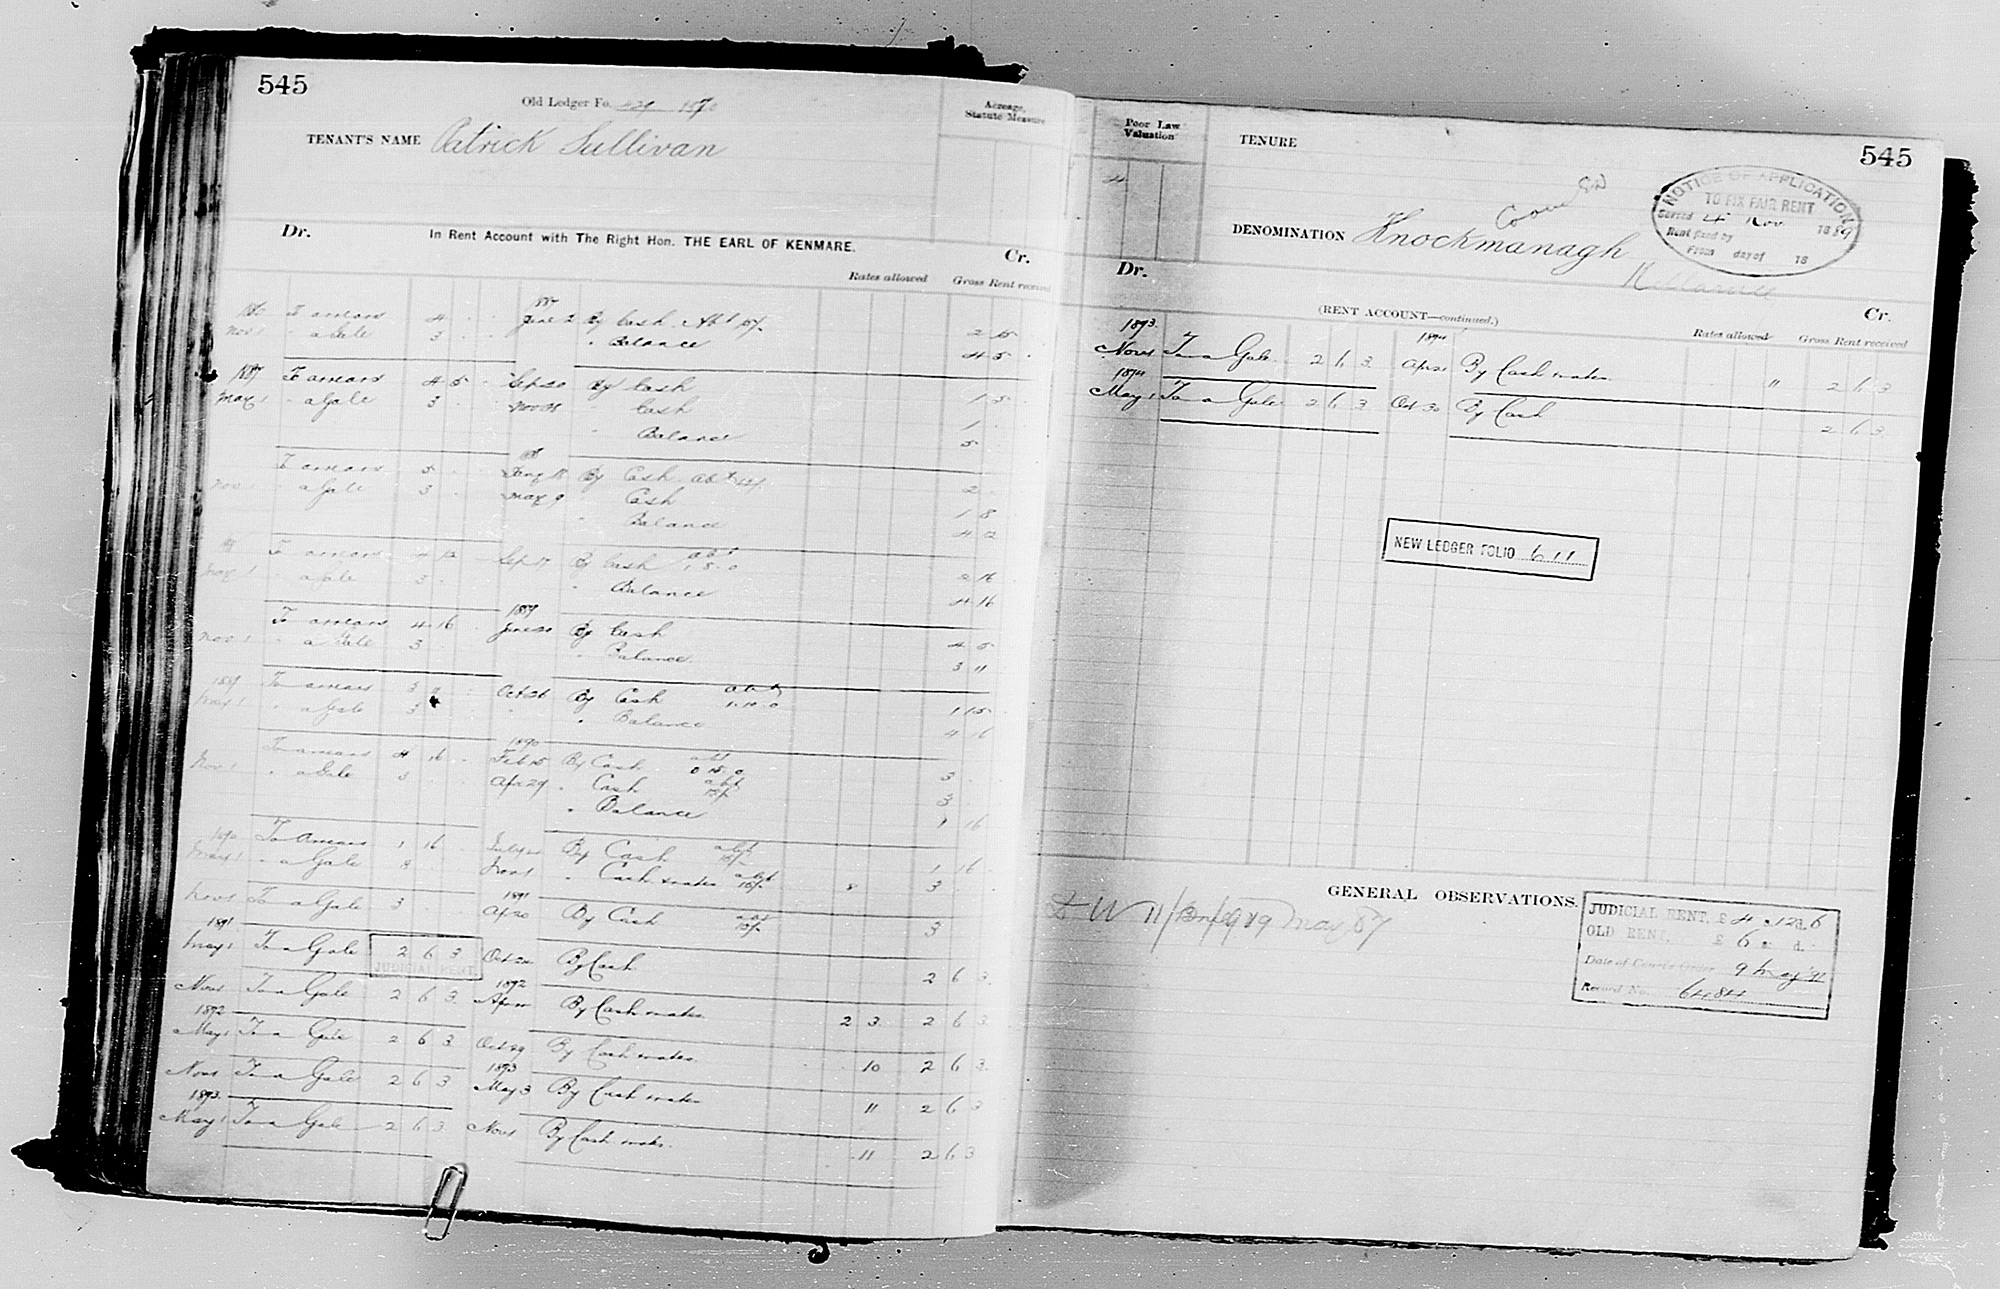 545
Old Ledger Fo.
Acreage,
Statute Measure
TENANT'S NAME Patrick Sullivan
Dr. In Rent Account with The Right Hon. THE EARL OF KENMARE. Cr.
Rates allowed Gross Rent received
To arrears 4 June 2 By Cash Abt 2 15
Nov 1 " a Gale 3 " Balance 4 5
1887 To arrears 4 5 Sep 20 By Cash 1 5
May 1 " a Gale 3 " Cash 1
" Balance 5
To arrears 5 By Cash abt 2
Nov 1 " a Gale 3 May 9 Cash 1 8
" Balance 4 2
To arrears 4 12 Sep 17 By Cash abt 1.8.0 2 16
May 1 " a Gale 3 " Balance 4 16
1889
To arrears 4 16 June 20 By Cash 4 5
Nov 1 " a Gale 3 " Balance 3 11
1889 To arrears 3 11 Oct 26 By Cash abt 1.10.0 1 15
May 1 " a Gale 3 " Balance 4 16
1890
To arrears 4 16 Feb 15 By Cash abt 0 15 0 3
Nov 1 " a Gale 3 Apr 29 " Cash abt 15/- 3
" Balance 1 16
1890 To Arrears 1 16 July By Cash abt 15/- 1 16
May 1 " a Gale 3 " Cash & rates abt 15/- 8 3
1891
Nov 1 To a Gale 3 Ap 20 By Cash abt 15/- 3
1891
May 1 To a Gale 2 6 3 Oct By Cash 2 6 3
JUDICIAL RENT
1892
Nov 1 To a Gale 2 6 3 Apr By Cash & rates 2 3 2 6 3
1892
May 1 To a Gale 2 6 3 Oct 29 By Cash & rates 10 2 6 3
1893
Nov 1 To a Gale 2 6 3 May 3 By Cash & rates 11 2 6 3
1893
May 1 To a Gale 2 6 3 Nov By Cash & rates 11 2 6 3
Poor Law
Valuation
TENURE
545
NOTICE OF APPLICATION
TO FIX FAIR RENT
Served 4 Nov 1889
Rent fixed by
From day of 18
DENOMINATION Knockmanagh
Dr. (RENT ACCOUNT—continued.) Cr.
Rates allowed Gross Rent received
1893 1894
Nov 1 To a Gale 2 6 3 Apr 21 By Cash & rates 11 2 6 3
1894
May 1 To a Gale 2 6 3 Oct 30 By Cash 2 6 3
NEW LEDGER FOLIO 611
GENERAL OBSERVATIONS.
May 87
JUDICIAL RENT, £ 4 s. 12 d. 6
OLD RENT, £ 6 s. d.
Date of Court's Order 9 May '91
Record No. 6484